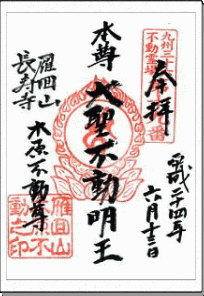 九州三十六
不動霊場
番
奉拝
平成二十四年
六月十三日
本尊
大聖不動明王
雁回山
長寿寺
木原不動尊
雁回山
木原不
動之印